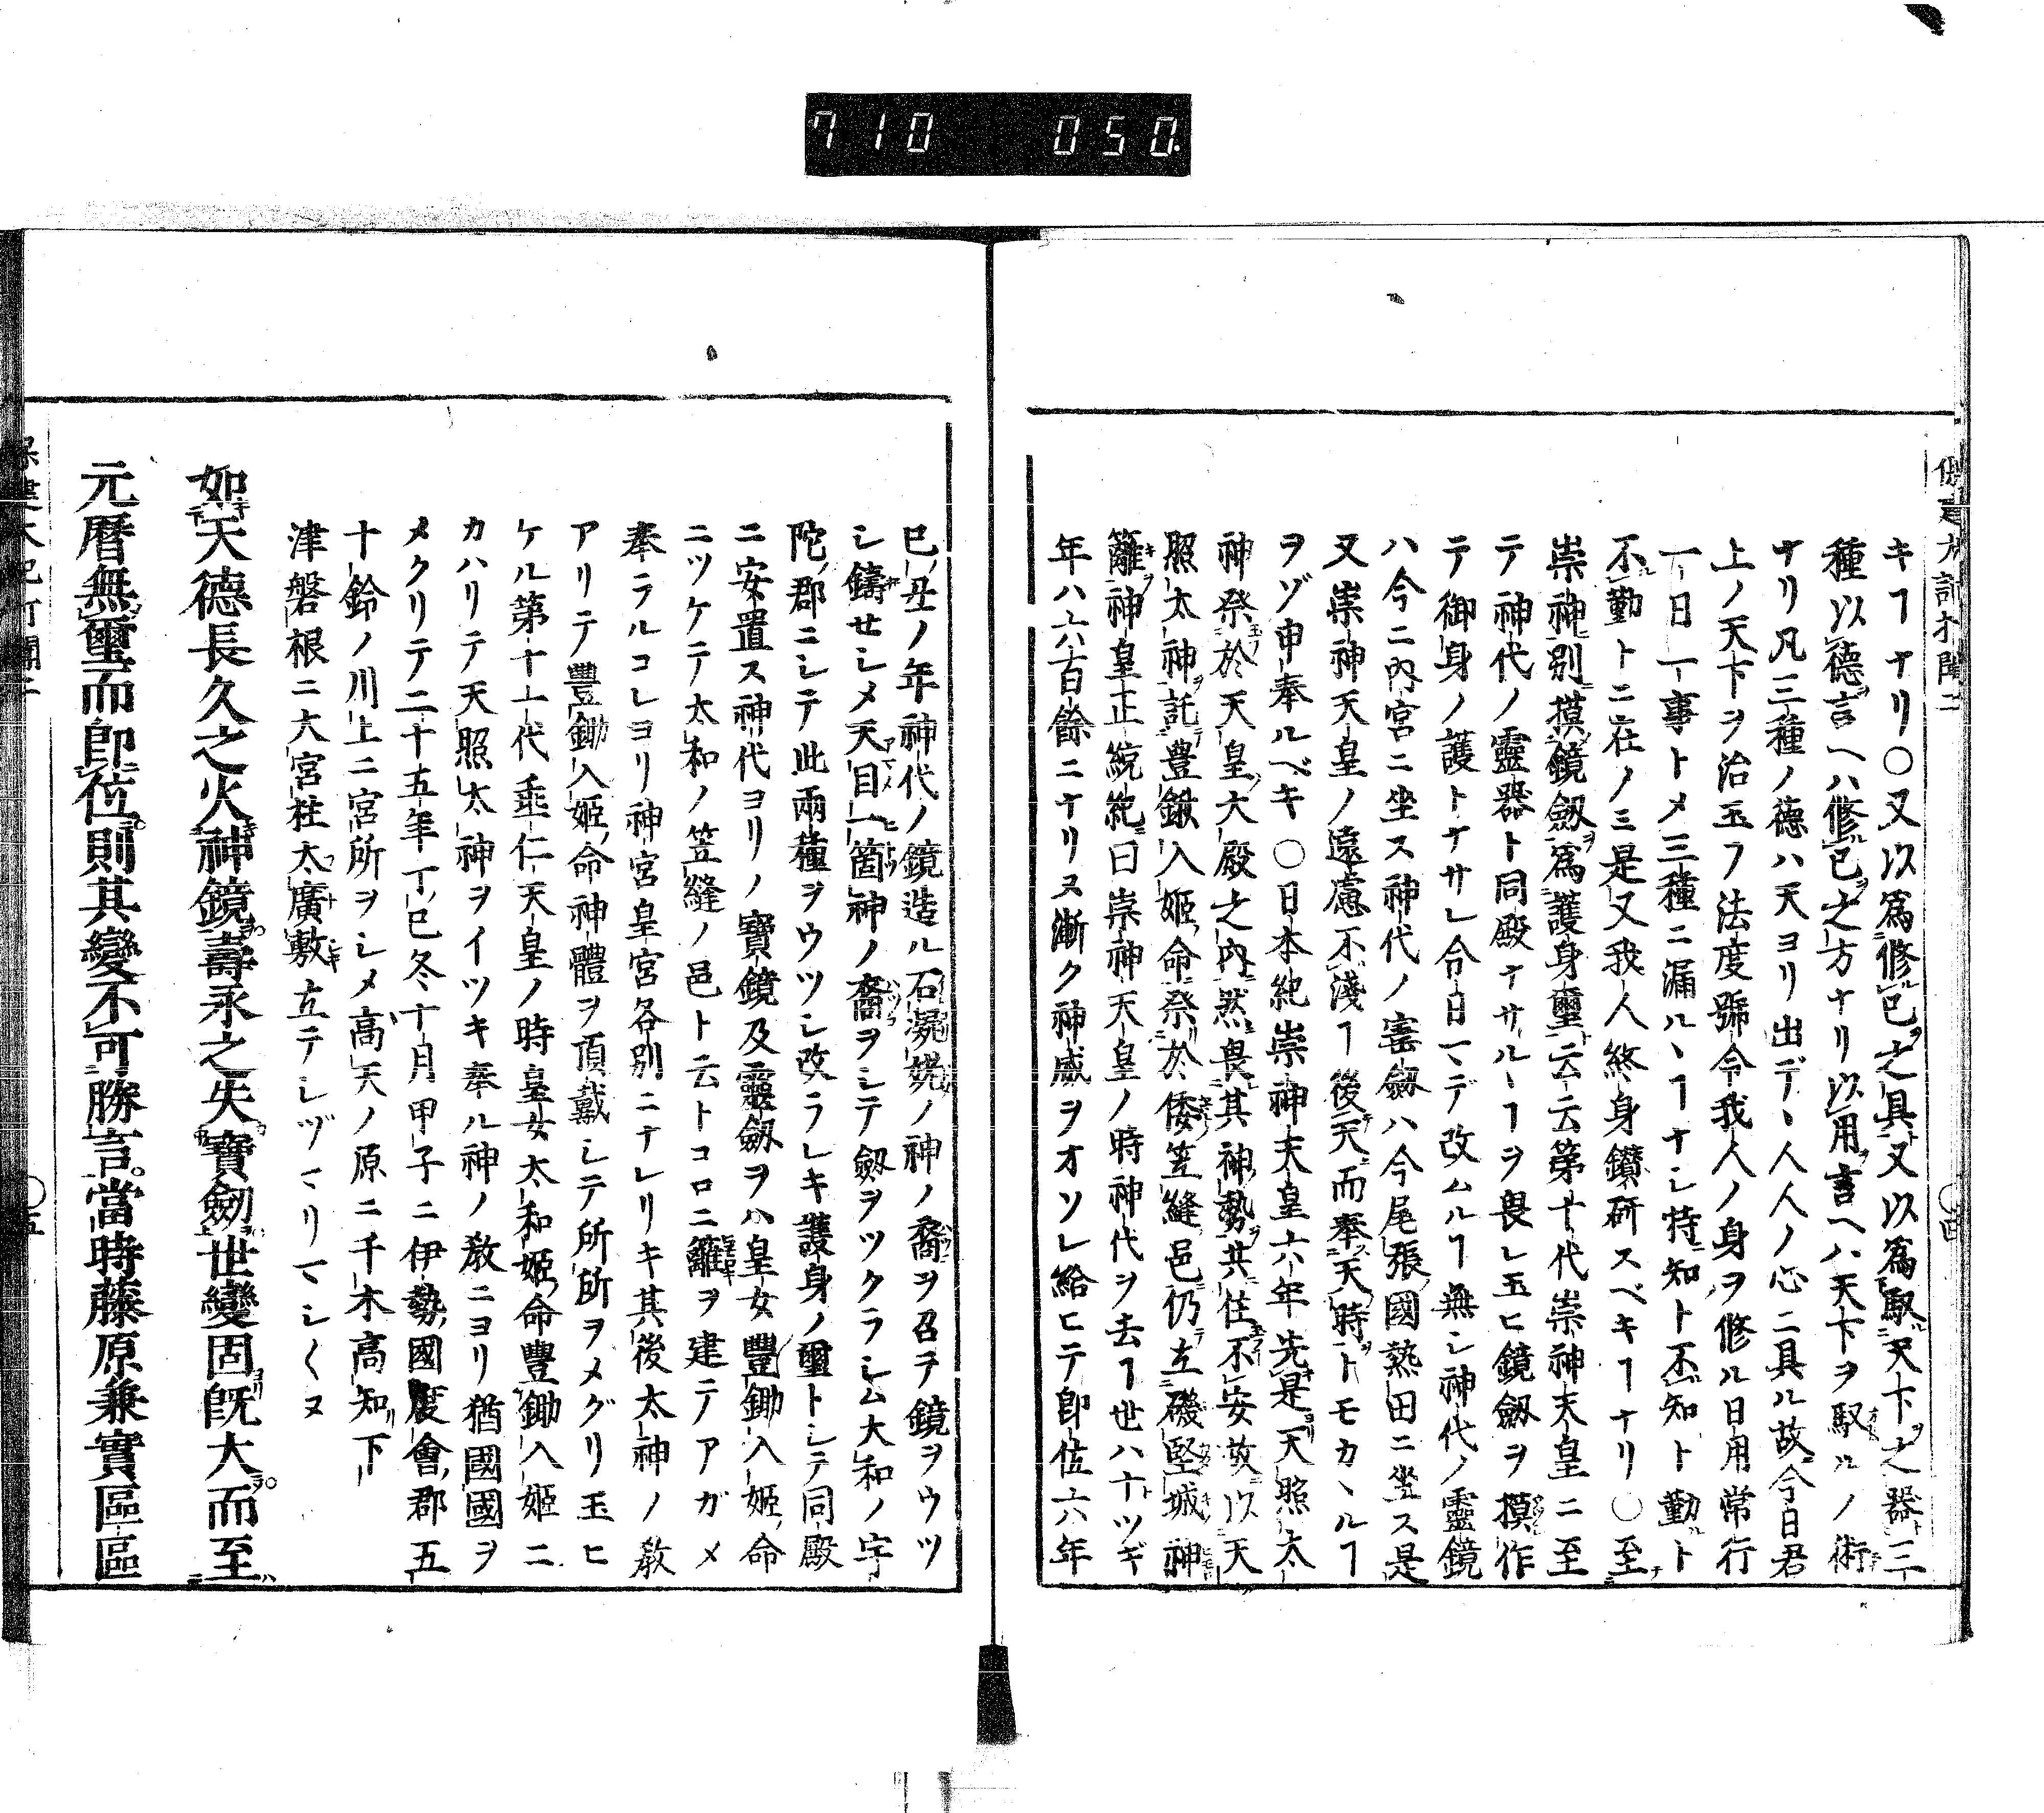 710 050.
保建大記打聞二
〇四
キヿナリ〇又以為修己之具又以為馭天下之器三
種以德言ヘハ修己之方ナリ以用言ヘハ天下ヲ馭ルノ術
ナリ凡三種ノ德ハ天ヨリ出デヽ人人ノ心ニ具ル故今日君
上ノ天下ヲ治玉フ法度號令我人ノ身ヲ修ル日用常行
一日一事トメ三種ニ漏ルヽヿナシ特知ト不知ト勤ト
不勤トニ在ノミ是又我人終身鑽研スベキヿナリ〇至
崇神別摸鏡劔爲護身璽云云第十代崇神天皇ニ至
テ神代ノ靈器ト同殿ナサルヽヿヲ畏レ玉ヒ鏡劔ヲ摸作
テ御身ノ護トナサレ令日ヽデ改ムルヿ無シ神代ノ靈鏡
ハ今ニ內宮ニ坐ス神代ノ寳劔ハ今尾張國熱田ニ坐ス是
又崇神天皇ノ遠慮不淺ヿ後天而奉天時トモカヽルヿ
ヲゾ申奉ルベキ〇日本紀崇神天皇六年先是天照太
神祭於天皇大殿之內然畏其神勢共住不安故以天
照太神託豊鍬入姫命祭於倭笠縫邑仍立磯堅城神
籬神皇正統紀曰崇神天皇ノ時神代ヲ去ヿ世ハ十ツギ
年ハ六百餘ニナリヌ漸ク神威ヲオソレ給ヒテ卽位六年
己丑ノ年神代ノ鏡造ル石凝姥ノ神ノ裔ヲ召テ鏡ヲウツ
シ鑄セシメ天目一箇神ノ裔ヲシテ劔ヲツクラシム大和ノ宇
陀郡ニシテ此兩種ヲウツシ改ラレキ護身ノ璽トシテ同殿
ニ安置ス神代ヨリノ寶鏡及靈劔ヲハ皇女豐鋤入姫命
ニツケテ太和ノ笠縫ノ邑ト云トコロニ籬ヲ建テアガメ
奉ラルコレヨリ神宮皇宮各別ニナレリキ其後太神ノ敎
アリテ豐鋤入姫命神體ヲ頂戴シテ所所ヲメグリ玉ヒ
ケル第十一代垂仁天皇ノ時皇女太和姫命豐鋤入姫ニ
カハリテ天照太神ヲイツキ奉ル神ノ敎ニヨリ猶國國ヲ
メクリテ二十五年丁巳冬十月甲子ニ伊勢國度會郡五
十鈴ノ川上ニ宮所ヲシメ高天ノ原ニ千木高知下
津磐根ニ大宮柱太廣敷立テシヅマリマシ〱ヌ
如天德長久之火神鏡壽永之失寶劒世變固旣大而至
元曆無璽而卽位則其變不可勝言當時藤原兼實區區
保建大記打聞二
〇五